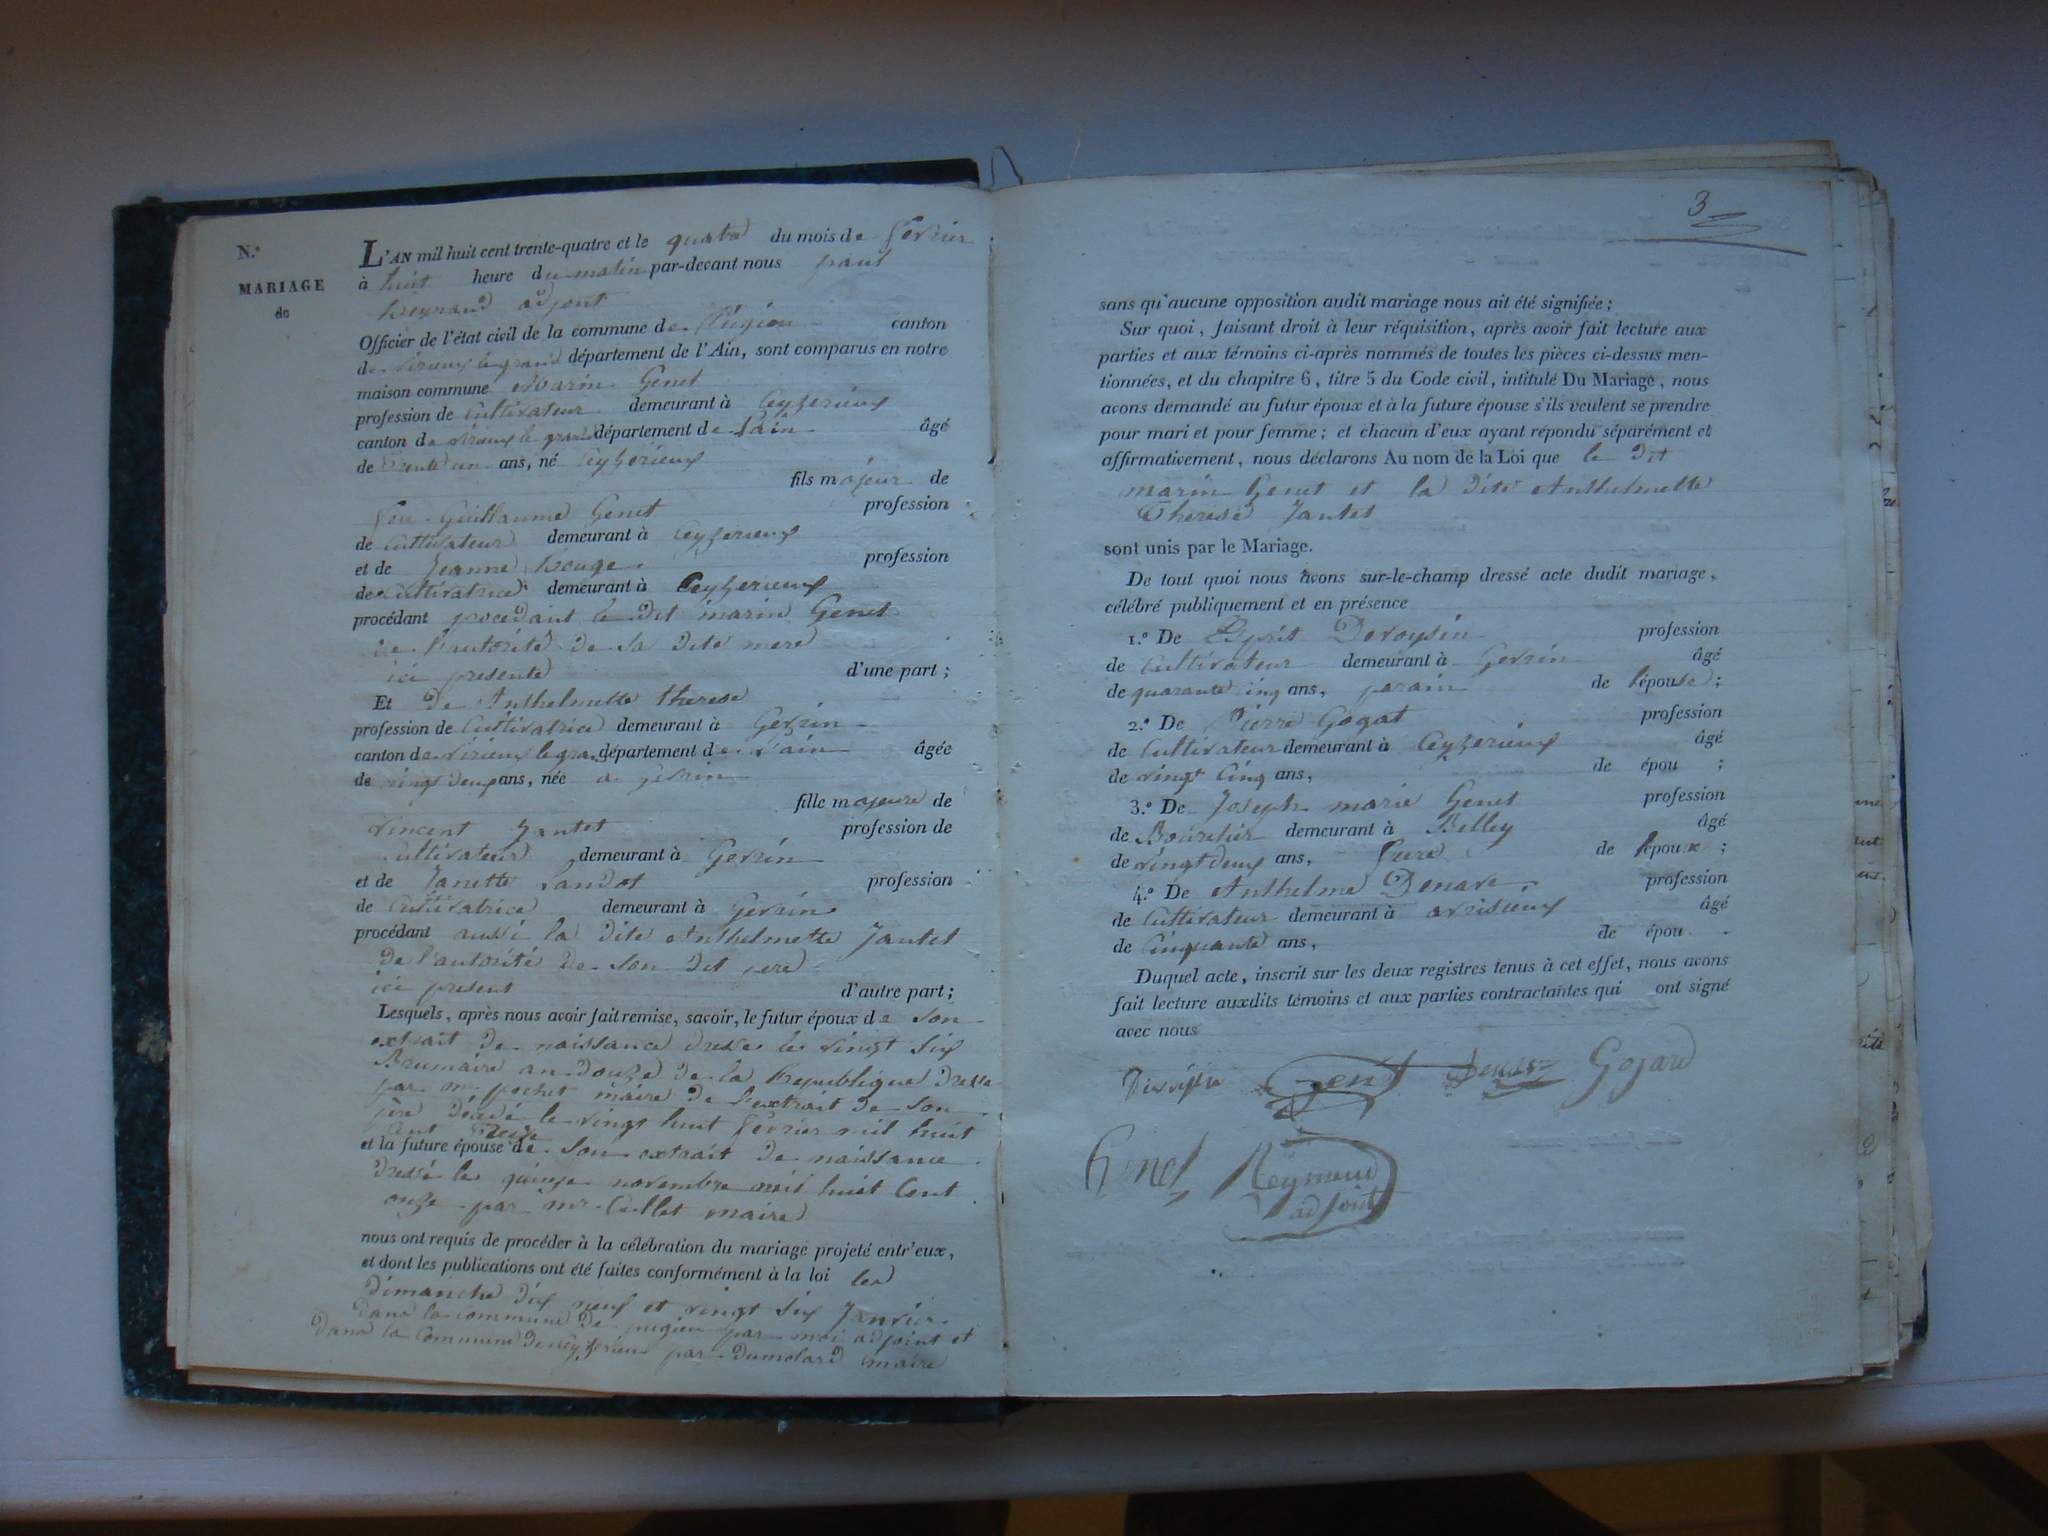 N.º
MARIAGE
de
L'AN mil huit cent trente-quatre et le quatre du mois de fevrier
à huit heure du matin par-devant nous paul
Reymand adjoint
Officier de l'état civil de la commune de Pugieu canton
de virieux le grand département de l'Ain, sont comparus en notre
maison commune Marin Genet
profession de cultivateur demeurant à Ceyzerieux
canton de virieux le grand département de L'ain âgé
de trente un ans, né Ceyzerieux
fils majeur de
feu Guillaume Genet profession
de cultivateur demeurant à Ceyzerieux
et de Jeanne Rouge profession
de cultivatrice demeurant à Ceyzerieux
procédant procedant le dit marin Genet
de l'autorité de sa dite mere
ici presente d'une part ;
Et de Anthelmette therese
profession de Cultivatrice demeurant à Gevrin
canton de virieux le gra. département de L'ain âgée
de vingt deux ans, née a gevrin
fille majeure de
vincent Jantet profession de
cultivateur demeurant à Gevrin
et de Janette Landot profession
de Cultivatrice demeurant à Gevrin
procédant aussi la dite Anthelmette Jantet
de l'autorité de son dit pere
ici present d'autre part ;
Lesquels, après nous avoir fait remise, savoir, le futur époux de son
extrait de naissance dressé le vingt six
Brumaire an douze de la Republique dressé
par mr pochet maire de l'extrait de son
père décédé le vingt huit fevrier mil huit
cent
et la future épouse de son extrait de naissance
dressé le quinze novembre mil huit Cent
onze par mr Cullet maire
nous ont requis de procéder à la célébration du mariage projeté entr'eux,
et dont les publications ont été faites conformément à la loi les
dimanche dix neuf et vingt six Janvier
dans la commune de pugieu par moi adjoint et
dans la Commune de Ceyzerieu par Dumolard maire
3
sans qu'aucune opposition audit mariage nous ait été signifiée ;
Sur quoi, faisant droit à leur réquisition, après avoir fait lecture aux
parties et aux témoins ci-après nommés de toutes les pièces ci-dessus men-
tionnées, et du chapitre 6, titre 5 du Code civil, intitulé Du Mariage, nous
avons demandé au futur époux et à la future épouse s'ils veulent se prendre
pour mari et pour femme ; et chacun d'eux ayant répondu séparément et
affirmativement, nous déclarons Au nom de la Loi que le dit
marin Genet et la dite Anthelmette
Therese Jantet
sont unis par le Mariage.
De tout quoi nous avons sur-le-champ dressé acte dudit mariage,
célébré publiquement et en présence
1.º De Esprit Devoysin profession
de Cultivateur demeurant à Gevrin âgé
de quarante cinq ans, parain de l'épouse ;
2.º De Pierre Gogat profession
de Cultivateur demeurant à Ceyzerieux âgé
de vingt Cinq ans, de épou ;
3.º De Joseph marie Genet profession
de Bourelier demeurant à Belley âgé
de vingt deux ans, frere de l'époux ;
4.º De Anthelme Denave profession
de Cultivateur demeurant à avrisieux âgé
de Cinquante ans, de épou .
Duquel acte, inscrit sur les deux registres tenus à cet effet, nous avons
fait lecture auxdits témoins et aux parties contractantes qui ont signé
avec nous
Genet Gojard
Genet Reymand
adjoint